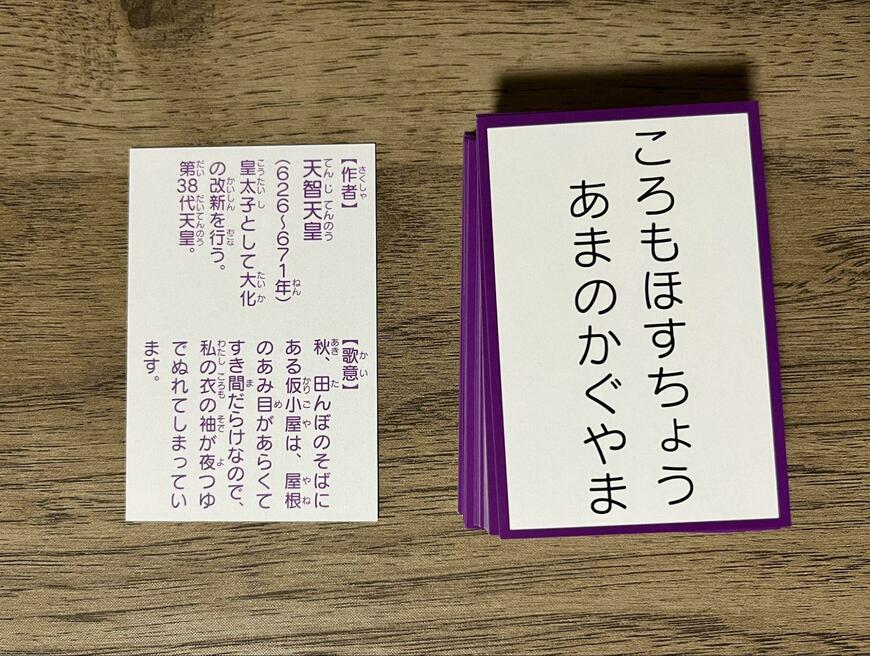 【作者】
天智天皇
(626〜671年)
皇太子として大化
の改新を行う。
第38代天皇。
【歌意】
秋、田んぼのそばに
ある仮小屋は、屋根
のあみ目があらくて
すき間だらけなので、
私の衣の袖が夜つゆ
でぬれてしまってい
ます。
ころもほすちょう
あまのかぐやま